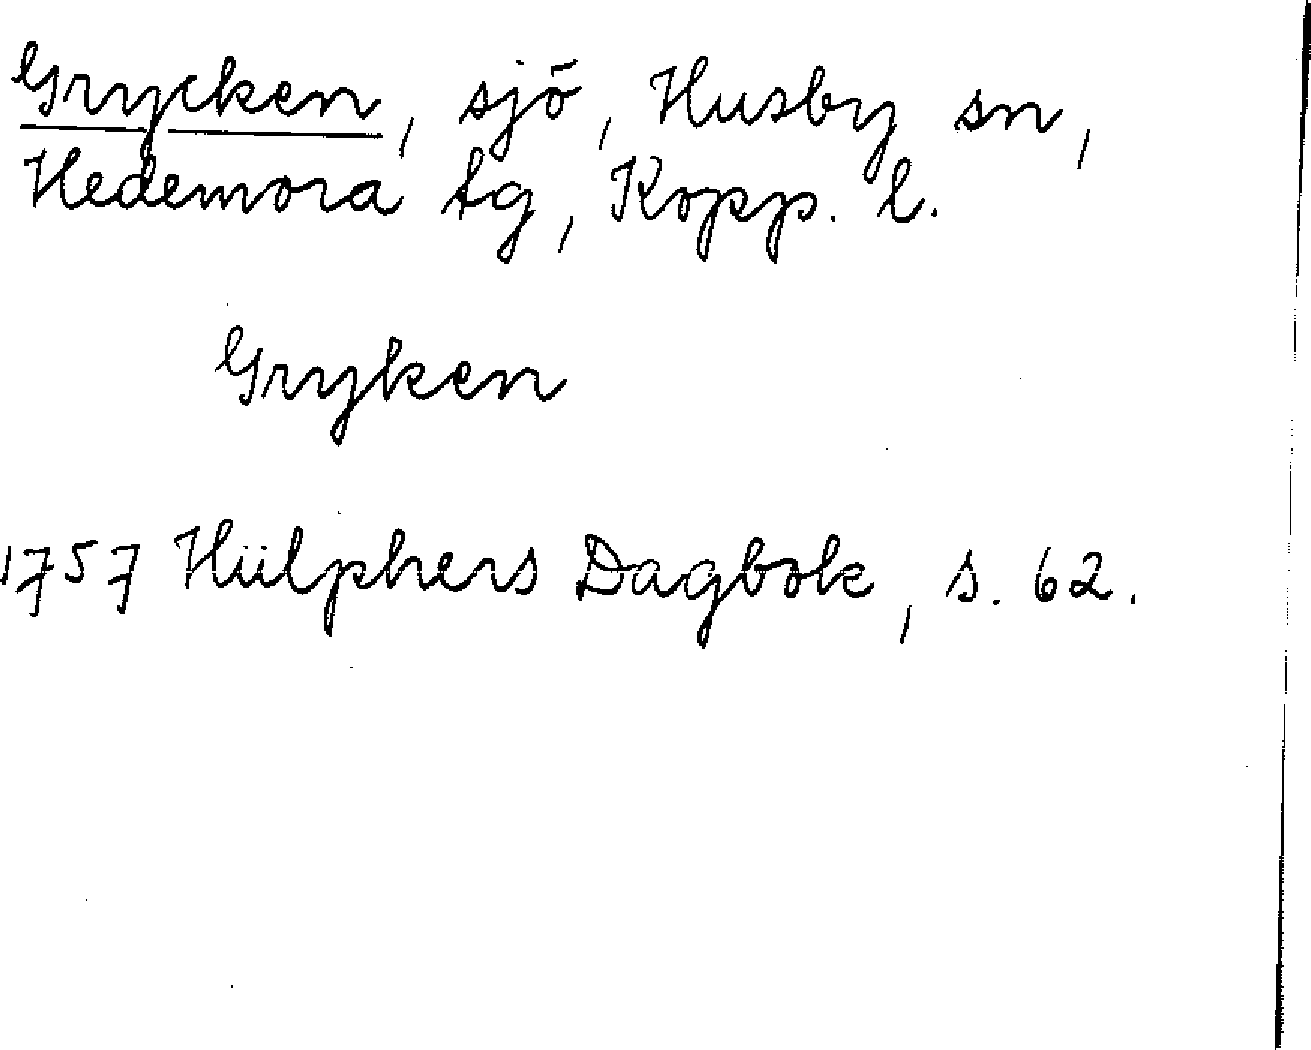 Grycken, sjö, Husby sn,
Hedemora tg, Kopp. l.
Gryken
1757 Hülphers Dagbok, s. 62.